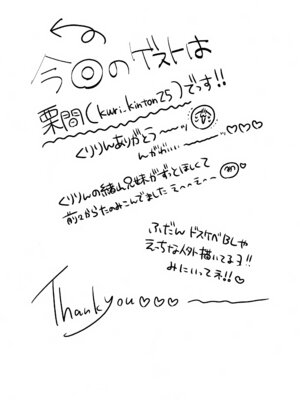 今回のゲストは
栗間(kuri_kinton25)でっす!!
くりりんありがとう〜〜ッ
んがわいい〜〜ッ♡♡♡
くりりんの緒山兄妹がずっとほしくて
前々からたのみこんでました えへ〜え〜
ふだん ドスケベBLや
えっちな人外描いてるヨ!!
みにいってネ!!♡
Thank you♡♡♡